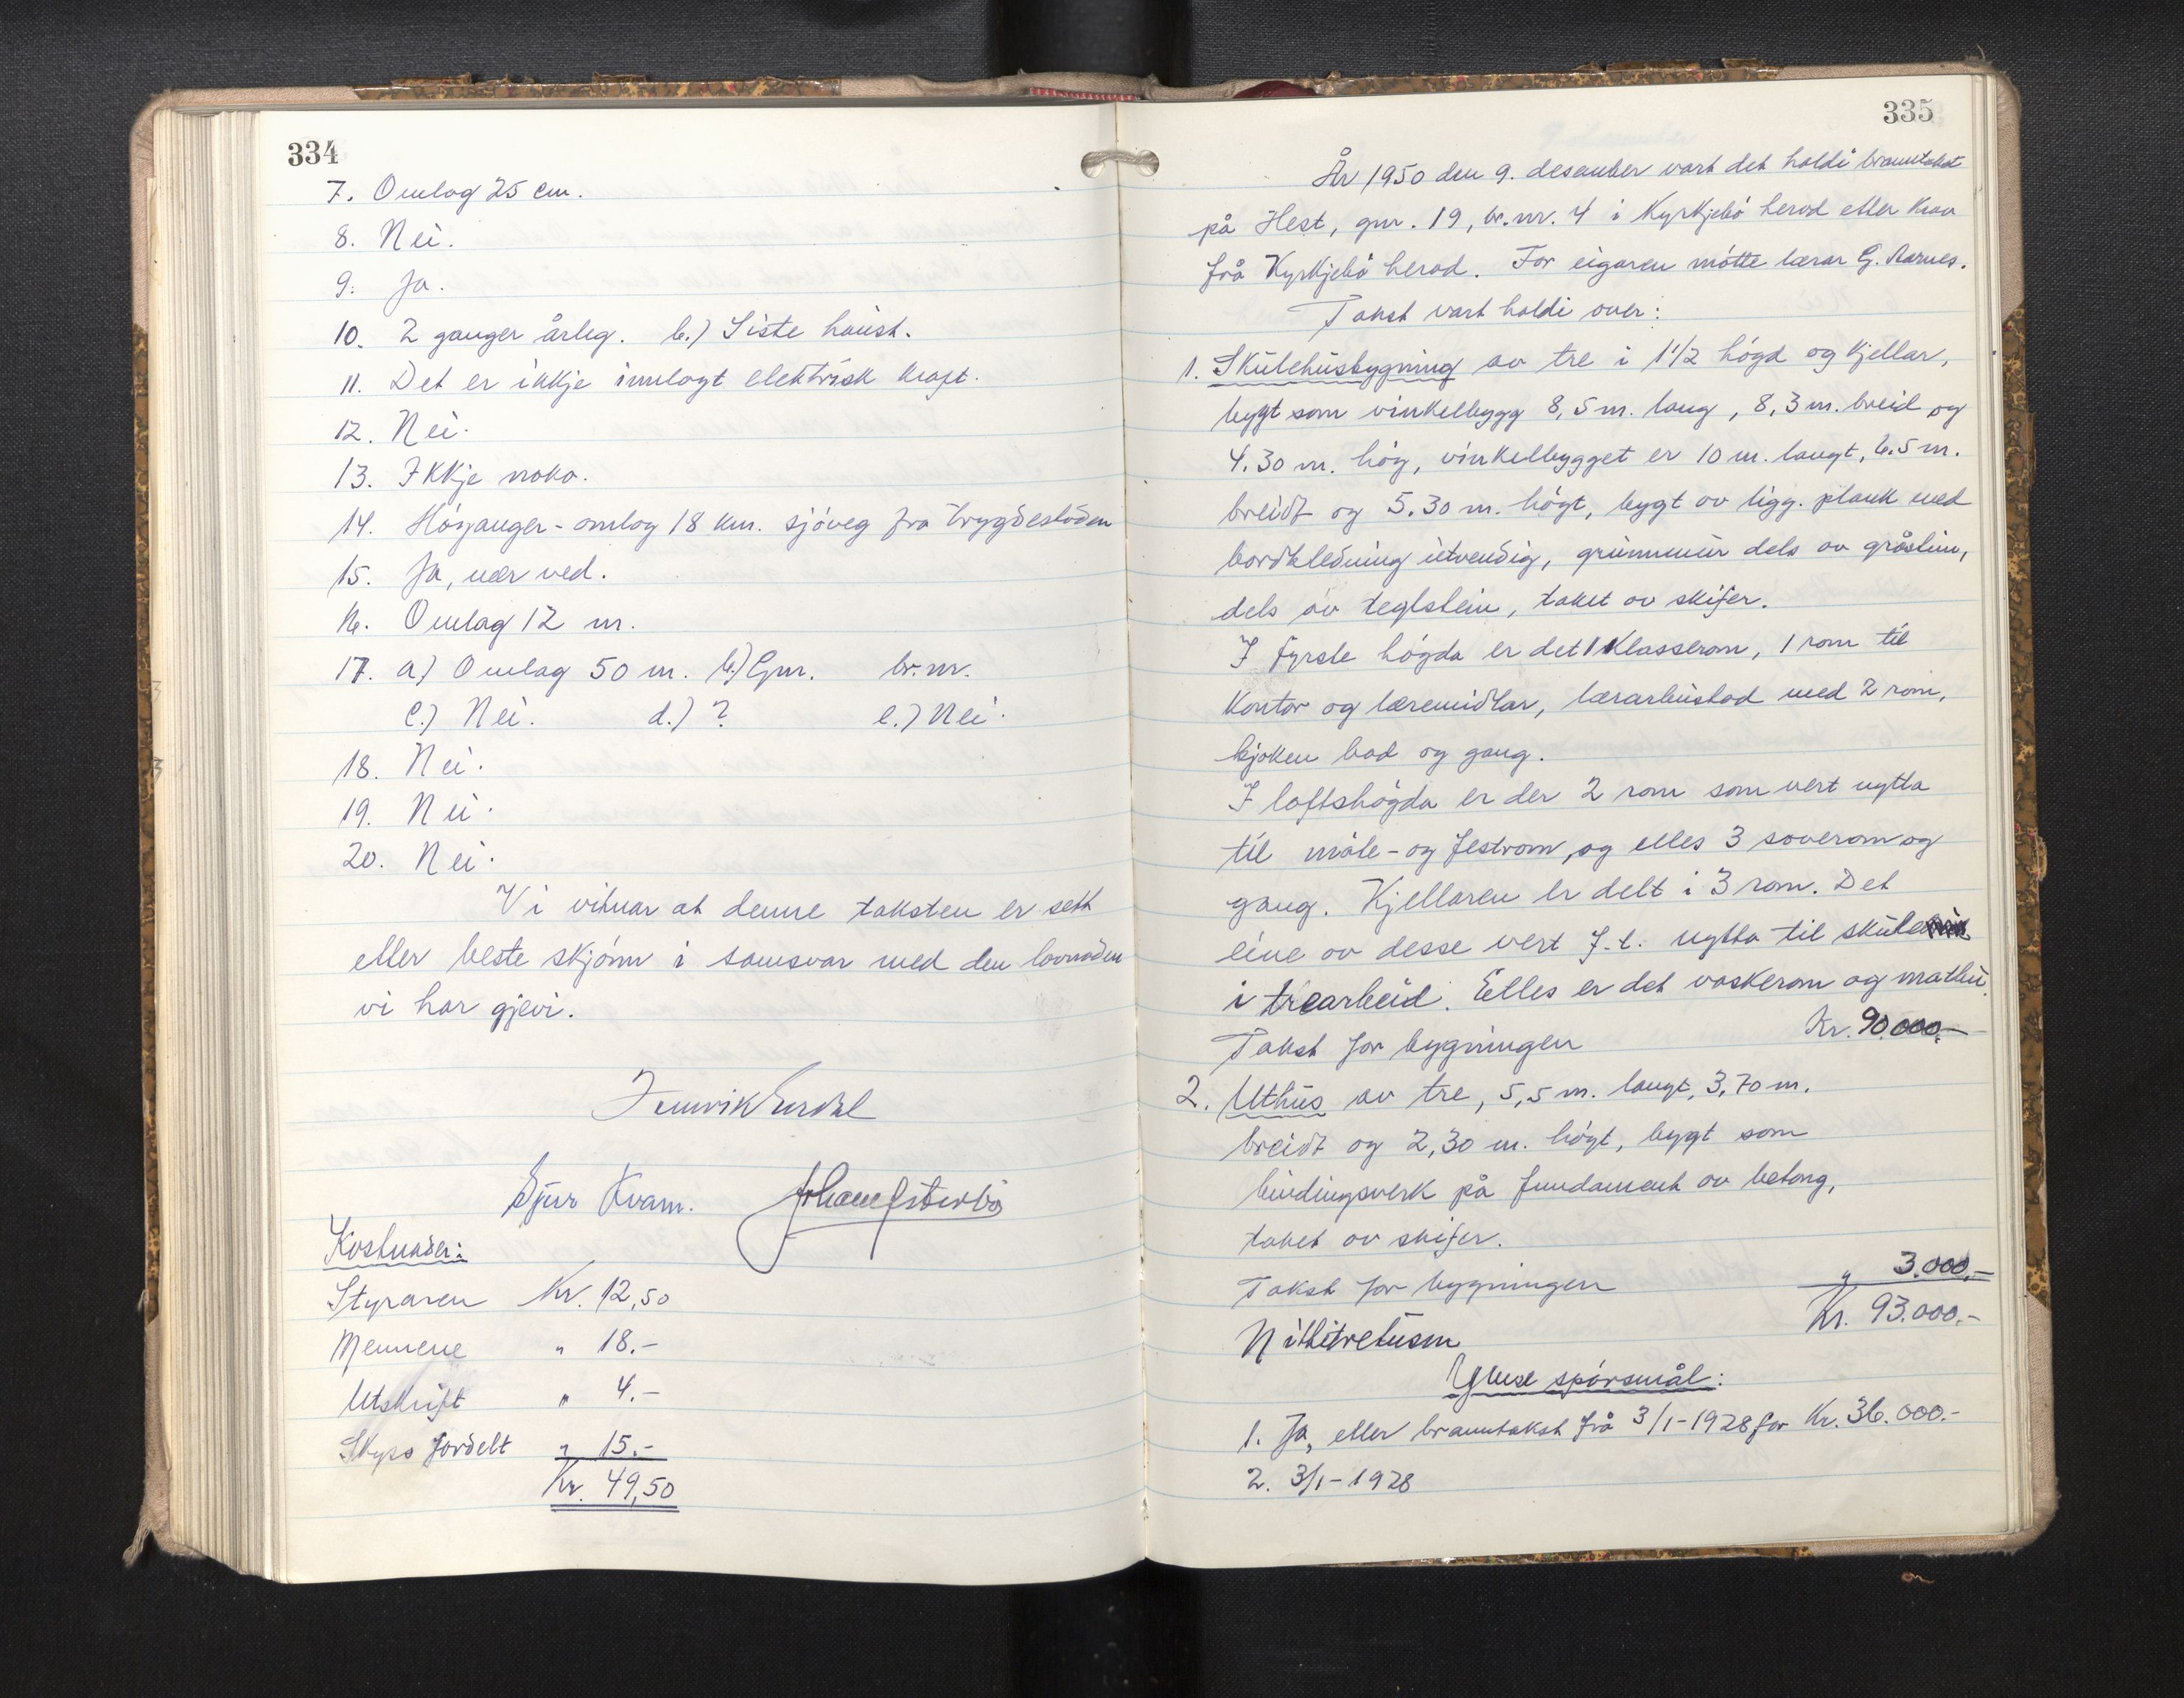 334
7. Omlag 25 cm.
8. Nei.
9. Ja.
10. 2 ganger årleg. b.) Siste haust.
11. Det er ikkje innlagt elektrisk kraft.
12. Nei.
13. Ikkje noko.
14. Höyanger - omlag 18 km. sjöveg fra brygdestöden
15. Ja, nær ved.
16. Omlag 12 m.
17. a) Omlag 50 m. b.) Gnr. br. nr.
c.) Nei. d.) ? e.) Nei.
18. Nei.
19. Nei.
20. Nei.
Vi vitnar at denne taksten er sett
etter beste skjönn i samsvar med den lovnaden
vi har gjevi.
Sjur Kvam.
Kostnader:
Styraren Kr. 12,50
Mennene " 18.-
Utskrift " 4.-
Skyss fordelt " 15.-
Kr. 49,50
335
År 1950 den 9. desember vart det haldi branntakst
på Hest, gnr. 19, br. nr. 4 i Kyrkjebö herad etter krav
frå Kyrkjebö herad. For eigaren mötte lærar G. Aarnes.
Takst vart haldi over:
1. Skulehusbygning av tre i 1 1/2 högd og kjellar,
bygt som vinkelbygg 8,5 m. lang, 8,3 m. breid og
4.30 m. hög, vinkelbygget er 10 m. langt, 6.5 m.
breidt og 5.30 m. högt, bygt av ligg. plank med
bordkledning utvendig, grunnmur dels av gråstein,
dels av teglstein, taket av skifer.
I fyrste högda er det 1 klasserom, 1 rom til
kontor og læremidlar, lærarbustad med 2 rom,
kjöken bad og gang.
I loftshögda er der 2 rom som vert nytta
til måle- og festrom, og elles 3 soverom og
gang. Kjellaren er delt i 3 rom. Det
eine av desse vert f.t. nytta til skule
i trearbeid. Elles er det vaskerom og matbu.
Takst for bygningen Kr. 90.000.-
2. Uthus av tre, 5,5 m. langt, 3,70 m.
breidt og 2,30 m. högt, bygt som
bindingsverk på fundament av betong,
taket av skifer.
Takst for bygningen " 3.000.-
Nittitretusen Kr. 93.000.-
Ymse spörsmål:
1. Ja, etter branntakst frå 3/1-1928 for Kr. 36.000.-
2. 3/1-1928